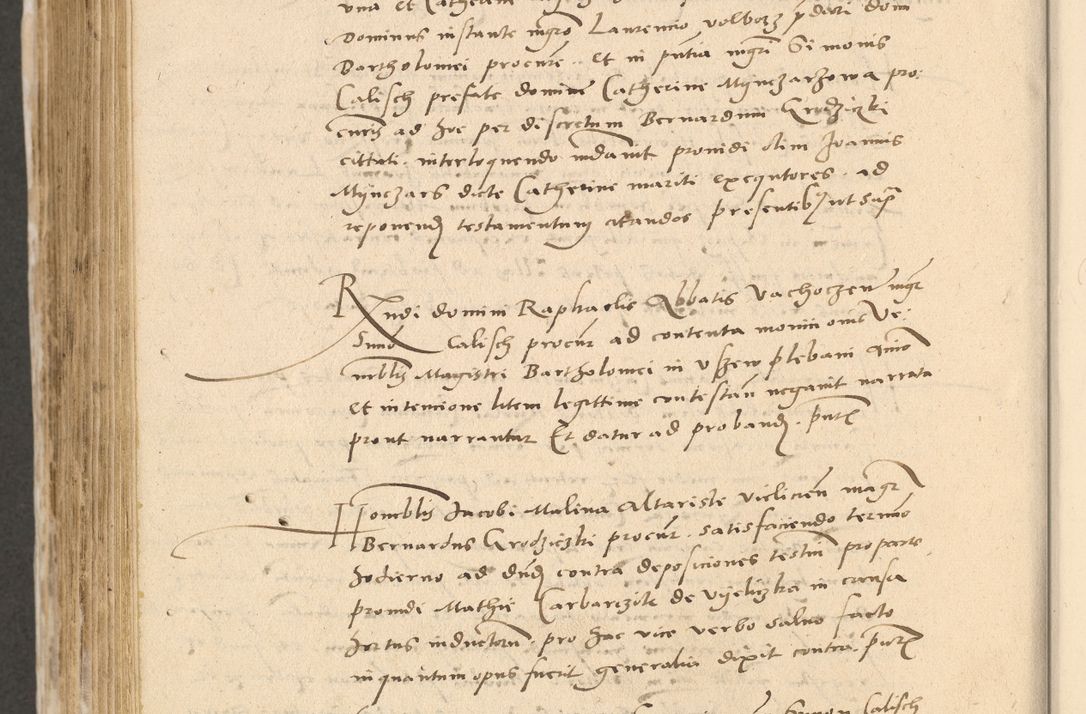 una et Catherine
Dominus instante mgro Laurencio Volborz pdcti domi
Bartholomei procure. et in pntia mgri Simonis
Calisch prefate domine Catherine Mynczarzowa pro:
curis ad hoc per discretum Bernardum Grodziczki
cittati. interloquendo mdauit prouidi olim Joannis
Mynczars dicte Catherine mariti exequtores. ad
reponend testamentum citandos presentibus ut supra
Rxndi domini Raphaelis Abbatis Vachoczen mgr
Simo Calisch procur ad contenta monicionis Ve:
nrblis Magistri Bartholomei in Uszew plebani animo
et intencione litem legittime contestan negauit narrata
prout narrantur Et datur ad proband. pntes
Honrblis Jacobi Malina Altariste Vielicien magr
Bernardus Grodziczki procur. satisfaciendo termino
hodierno ad dnd contra deposiciones testium pro parte
prouide Mathie Carbarczik de Vyeliczka in causa
hortus inductorum. pro hac vice verbo saluo facto
inquantum opus fuerit generalia dixit contra. pntes
Simon Calisch